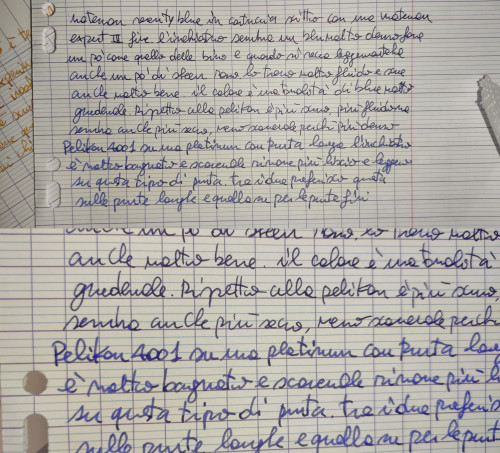 waterman serenity blue in cartuccia sotto con una waterman
expert III fine l'inchiostro sembra un blu molto denso fare
un po' come quello delle bino e quando si secca leggermente
anche un po' di sheen rosso. lo trovo molto fluido e
anche molto bene. il colore è una tonalità di blue molto
gradevole. Rispetto alla pelikan è più scuro, più fluido ma
sembra anche più secco, meno scorrevole perché più denso
Pelikan 4001 su una platinum con punta larga l'inchiostro
è molto bagnato e scorrevole rimane più liscio e leggero
su questo tipo di punta. tra i due preferisco questa
sulle punte larghe e quello su per le punte fini
anche un po' di sheen rosso. lo trovo molto
anche molto bene. il colore è una tonalità
gradevole. Rispetto alla pelikan è più scuro
sembra anche più secco, meno scorrevole perché
Pelikan 4001 su una platinum con punta larg
è molto bagnato e scorrevole rimane più l
su questo tipo di punta. tra i due preferis
sulle punte larghe e quello su per le punt